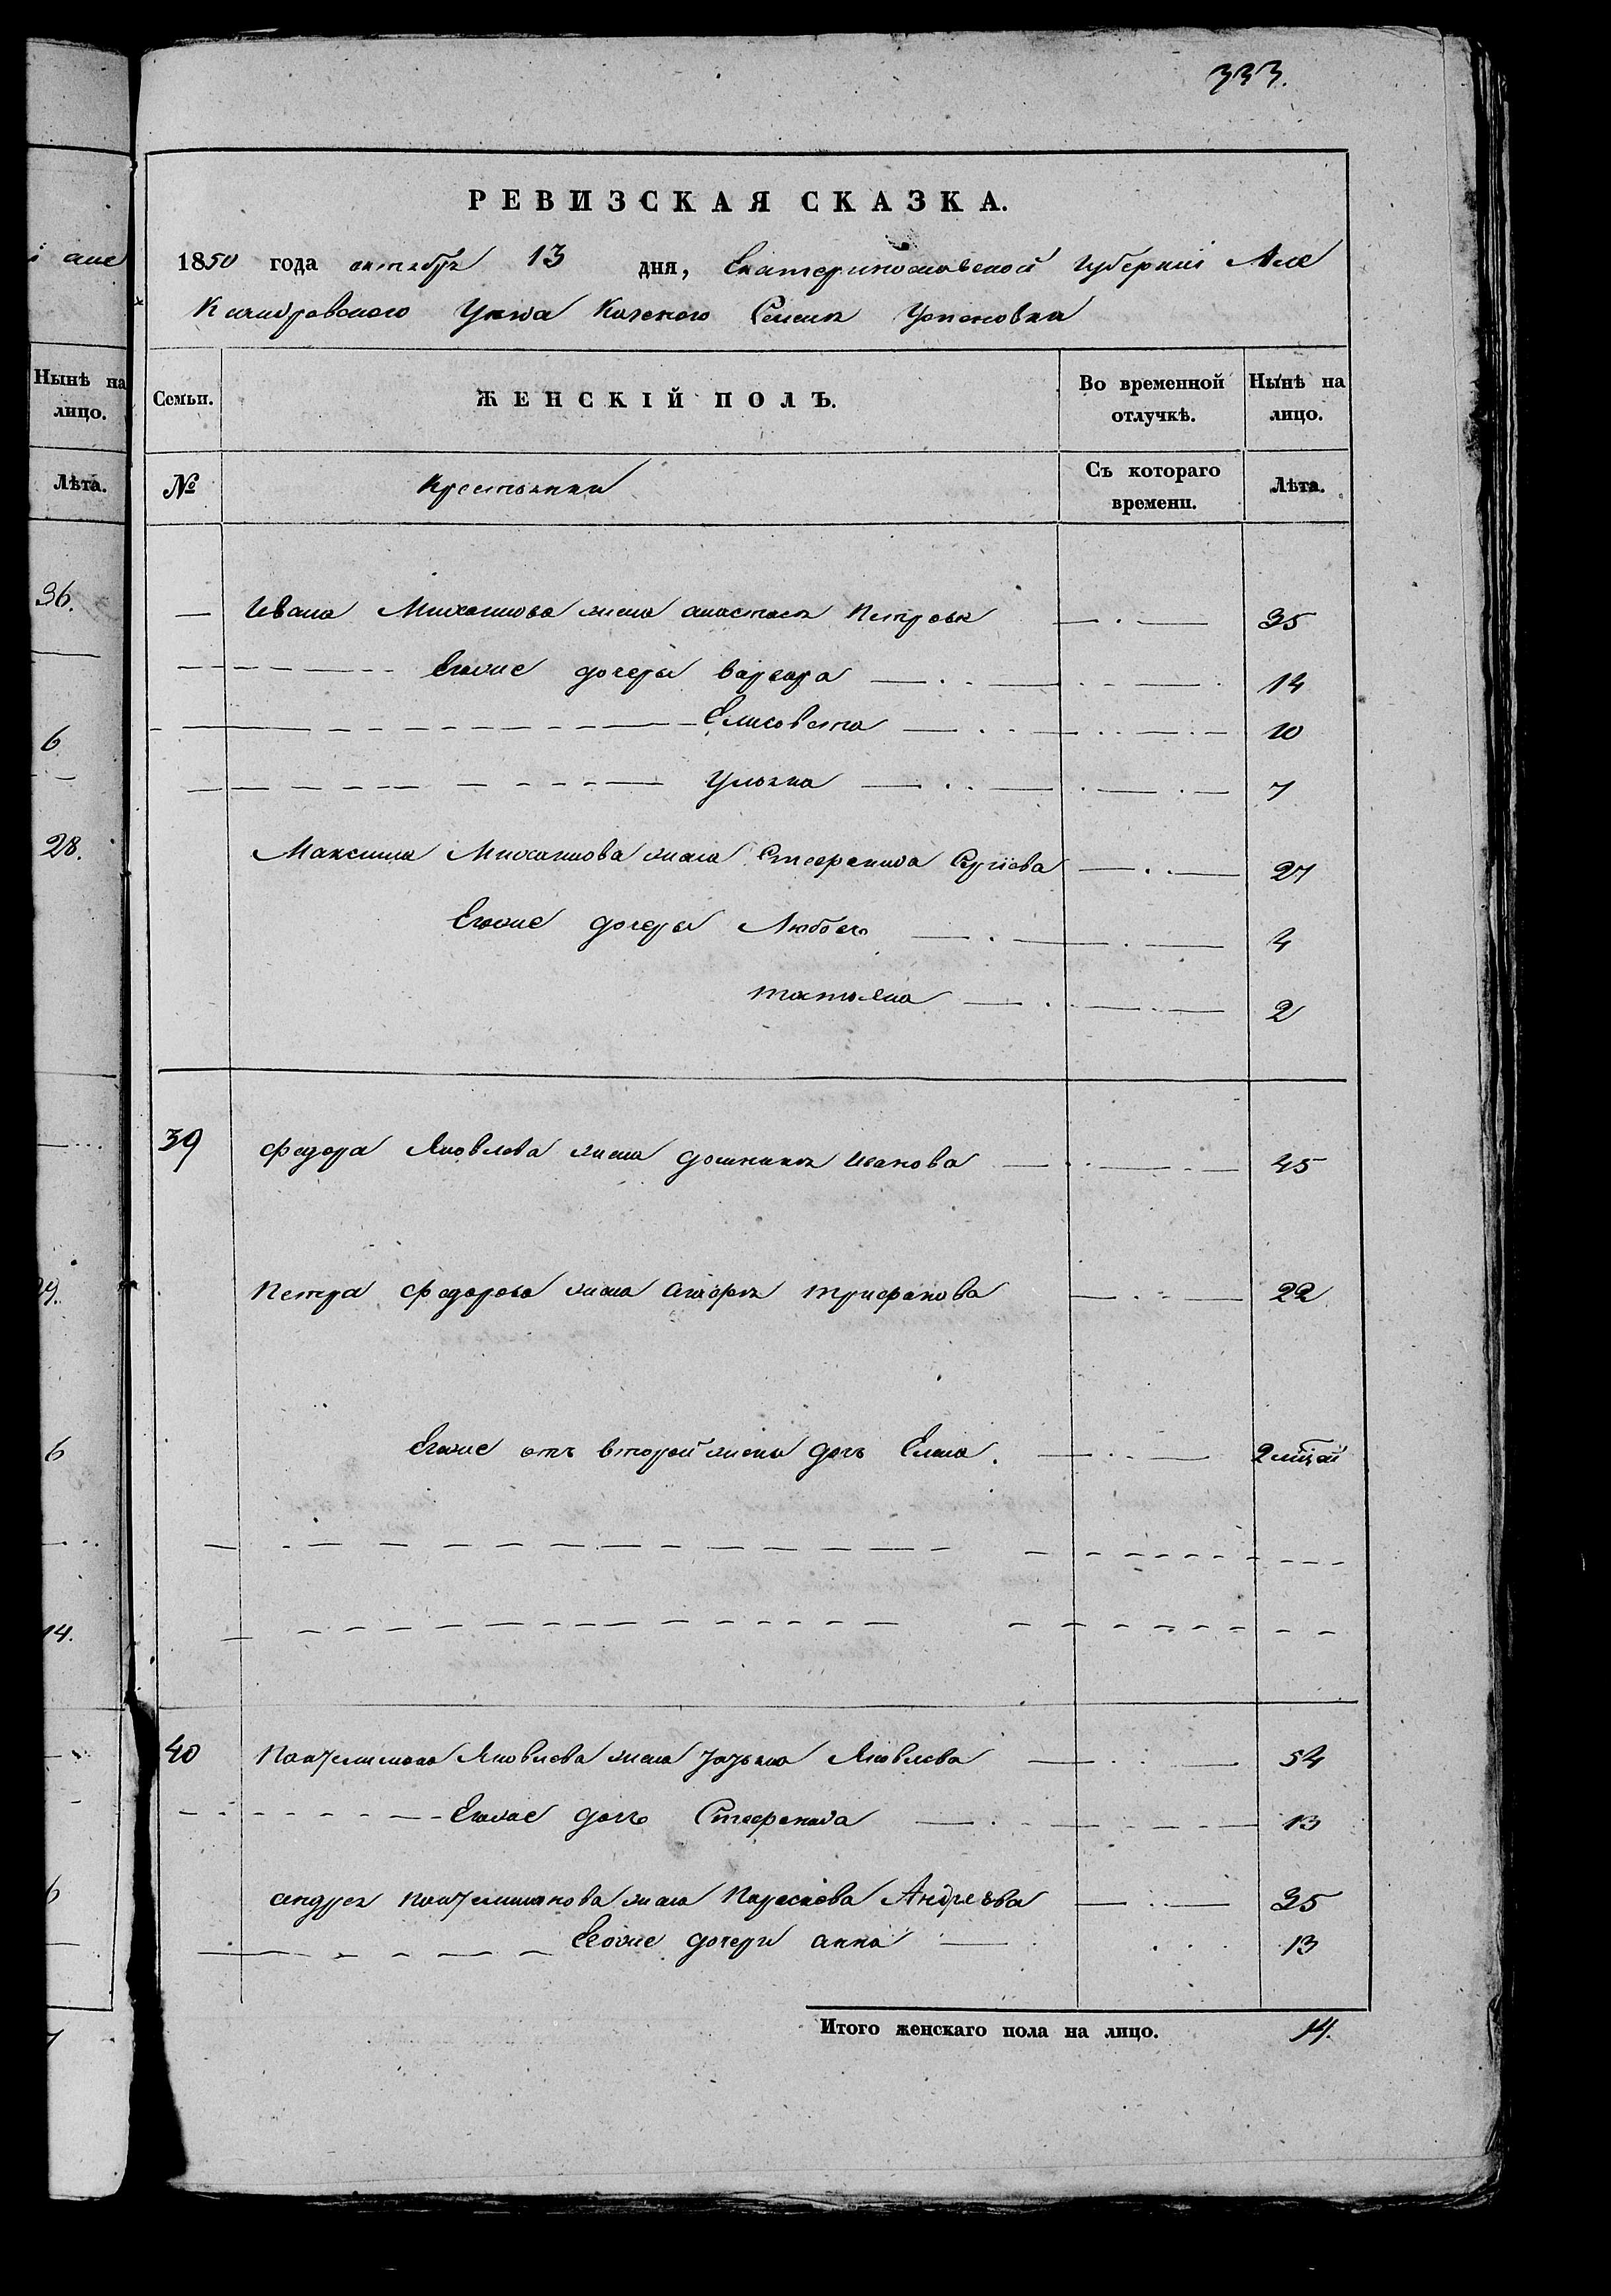 333.
РЕВИЗСКАЯ СКАЗКА.
1850 года октября 13 дня, Екатеринославской Губернiи Але
ксандровского Уезда Казеного Селенiя
Семьи. ЖЕНСКIЙ ПОЛЪ. Во временной отлучкѣ. Нынѣ на лицо.
№ Крестьянки Съ котораго времени. Лѣта.
Ивана Михаилова жена анастасiя Петрова 35
Егоже дочеры варвара 14
Елисовета 10
Ульяна 7
Максима Михаилова жена Стефанида 27
Егоже дочеры Любовь 4
татьяна 2
39 Федора Яковлева жена домникiя иванова 45
Петра Федорова жена трифанова 22
Егоже отъ второй жены дочь Елена. 2
40 Яковлева жена Яковлева 54
Егоже дочь Стефанида 13
андрея жена Параскева Андреева 35
Егоже дочери анна 13
Итого женскаго пола на лицо. 14.
i але
Нынѣ на
лицо.
Лѣта.
36.
6
28.
6
14.
6